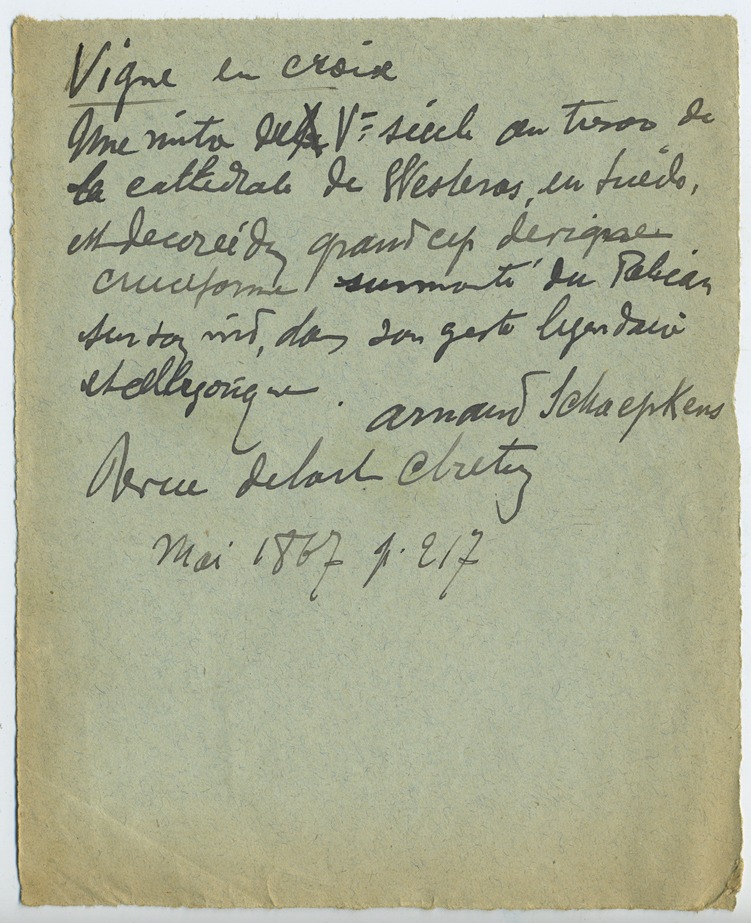 Vigne en croix
Une mitre du XVe siècle au trésor de
la cathédrale de Westeras, en Suède,
est decorée d'un grand cep de vigne
cruciforme surmonté du Pelican
sur son nid, dans son geste legendaire
et allegorique.
Arnaud Schaepkens
Revue de l'art chretien
Mai 1867 p. 217